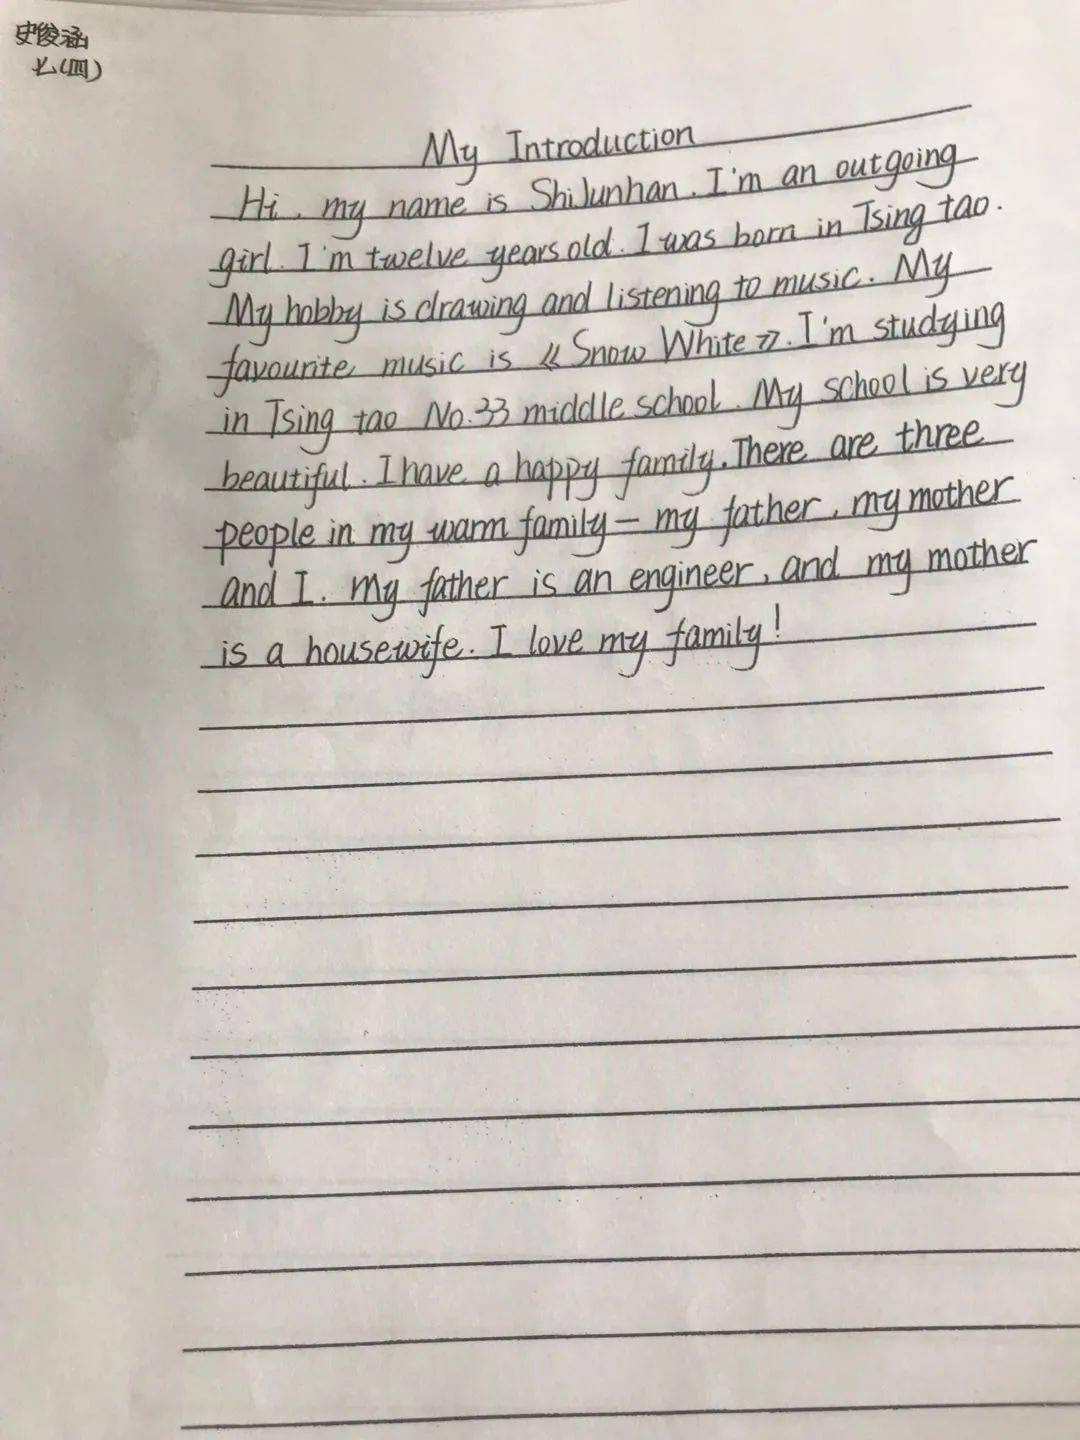 史俊涵
七(四)
My Introduction
Hi, my name is ShiJunhan. I'm an outgoing
girl. I'm twelve years old. I was born in Tsing tao.
My hobby is drawing and listening to music. My
favourite music is 《Snow White》. I'm studying
in Tsing tao No.33 middle school. My school is very
beautiful. I have a happy family. There are three
people in my warm family — my father, my mother
and I. My father is an engineer, and my mother
is a housewife. I love my family!